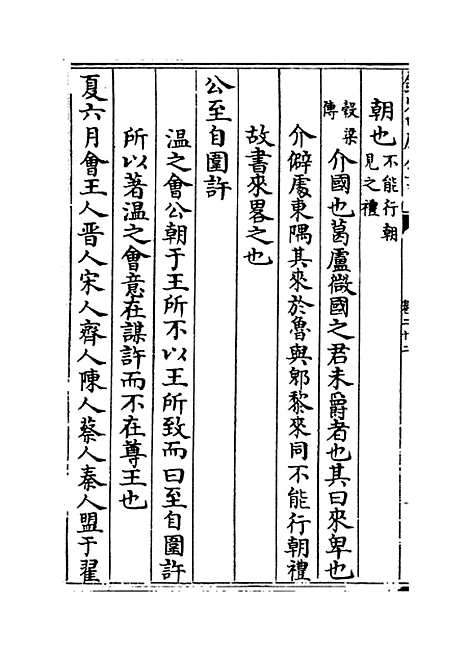 朝也不能行朝見之禮
穀梁傳介國也葛盧微國之君未爵者也其曰來卑也
介僻處東隅其來於魯與郳黎來同不能行朝禮
故書來畧之也
公至自圍許
温之會公朝于王所不以王所致而曰至自圍許
所以著温之會意在謀許而不在尊王也
夏六月會王人晋人宋人齊人陳人蔡人秦人盟于翟